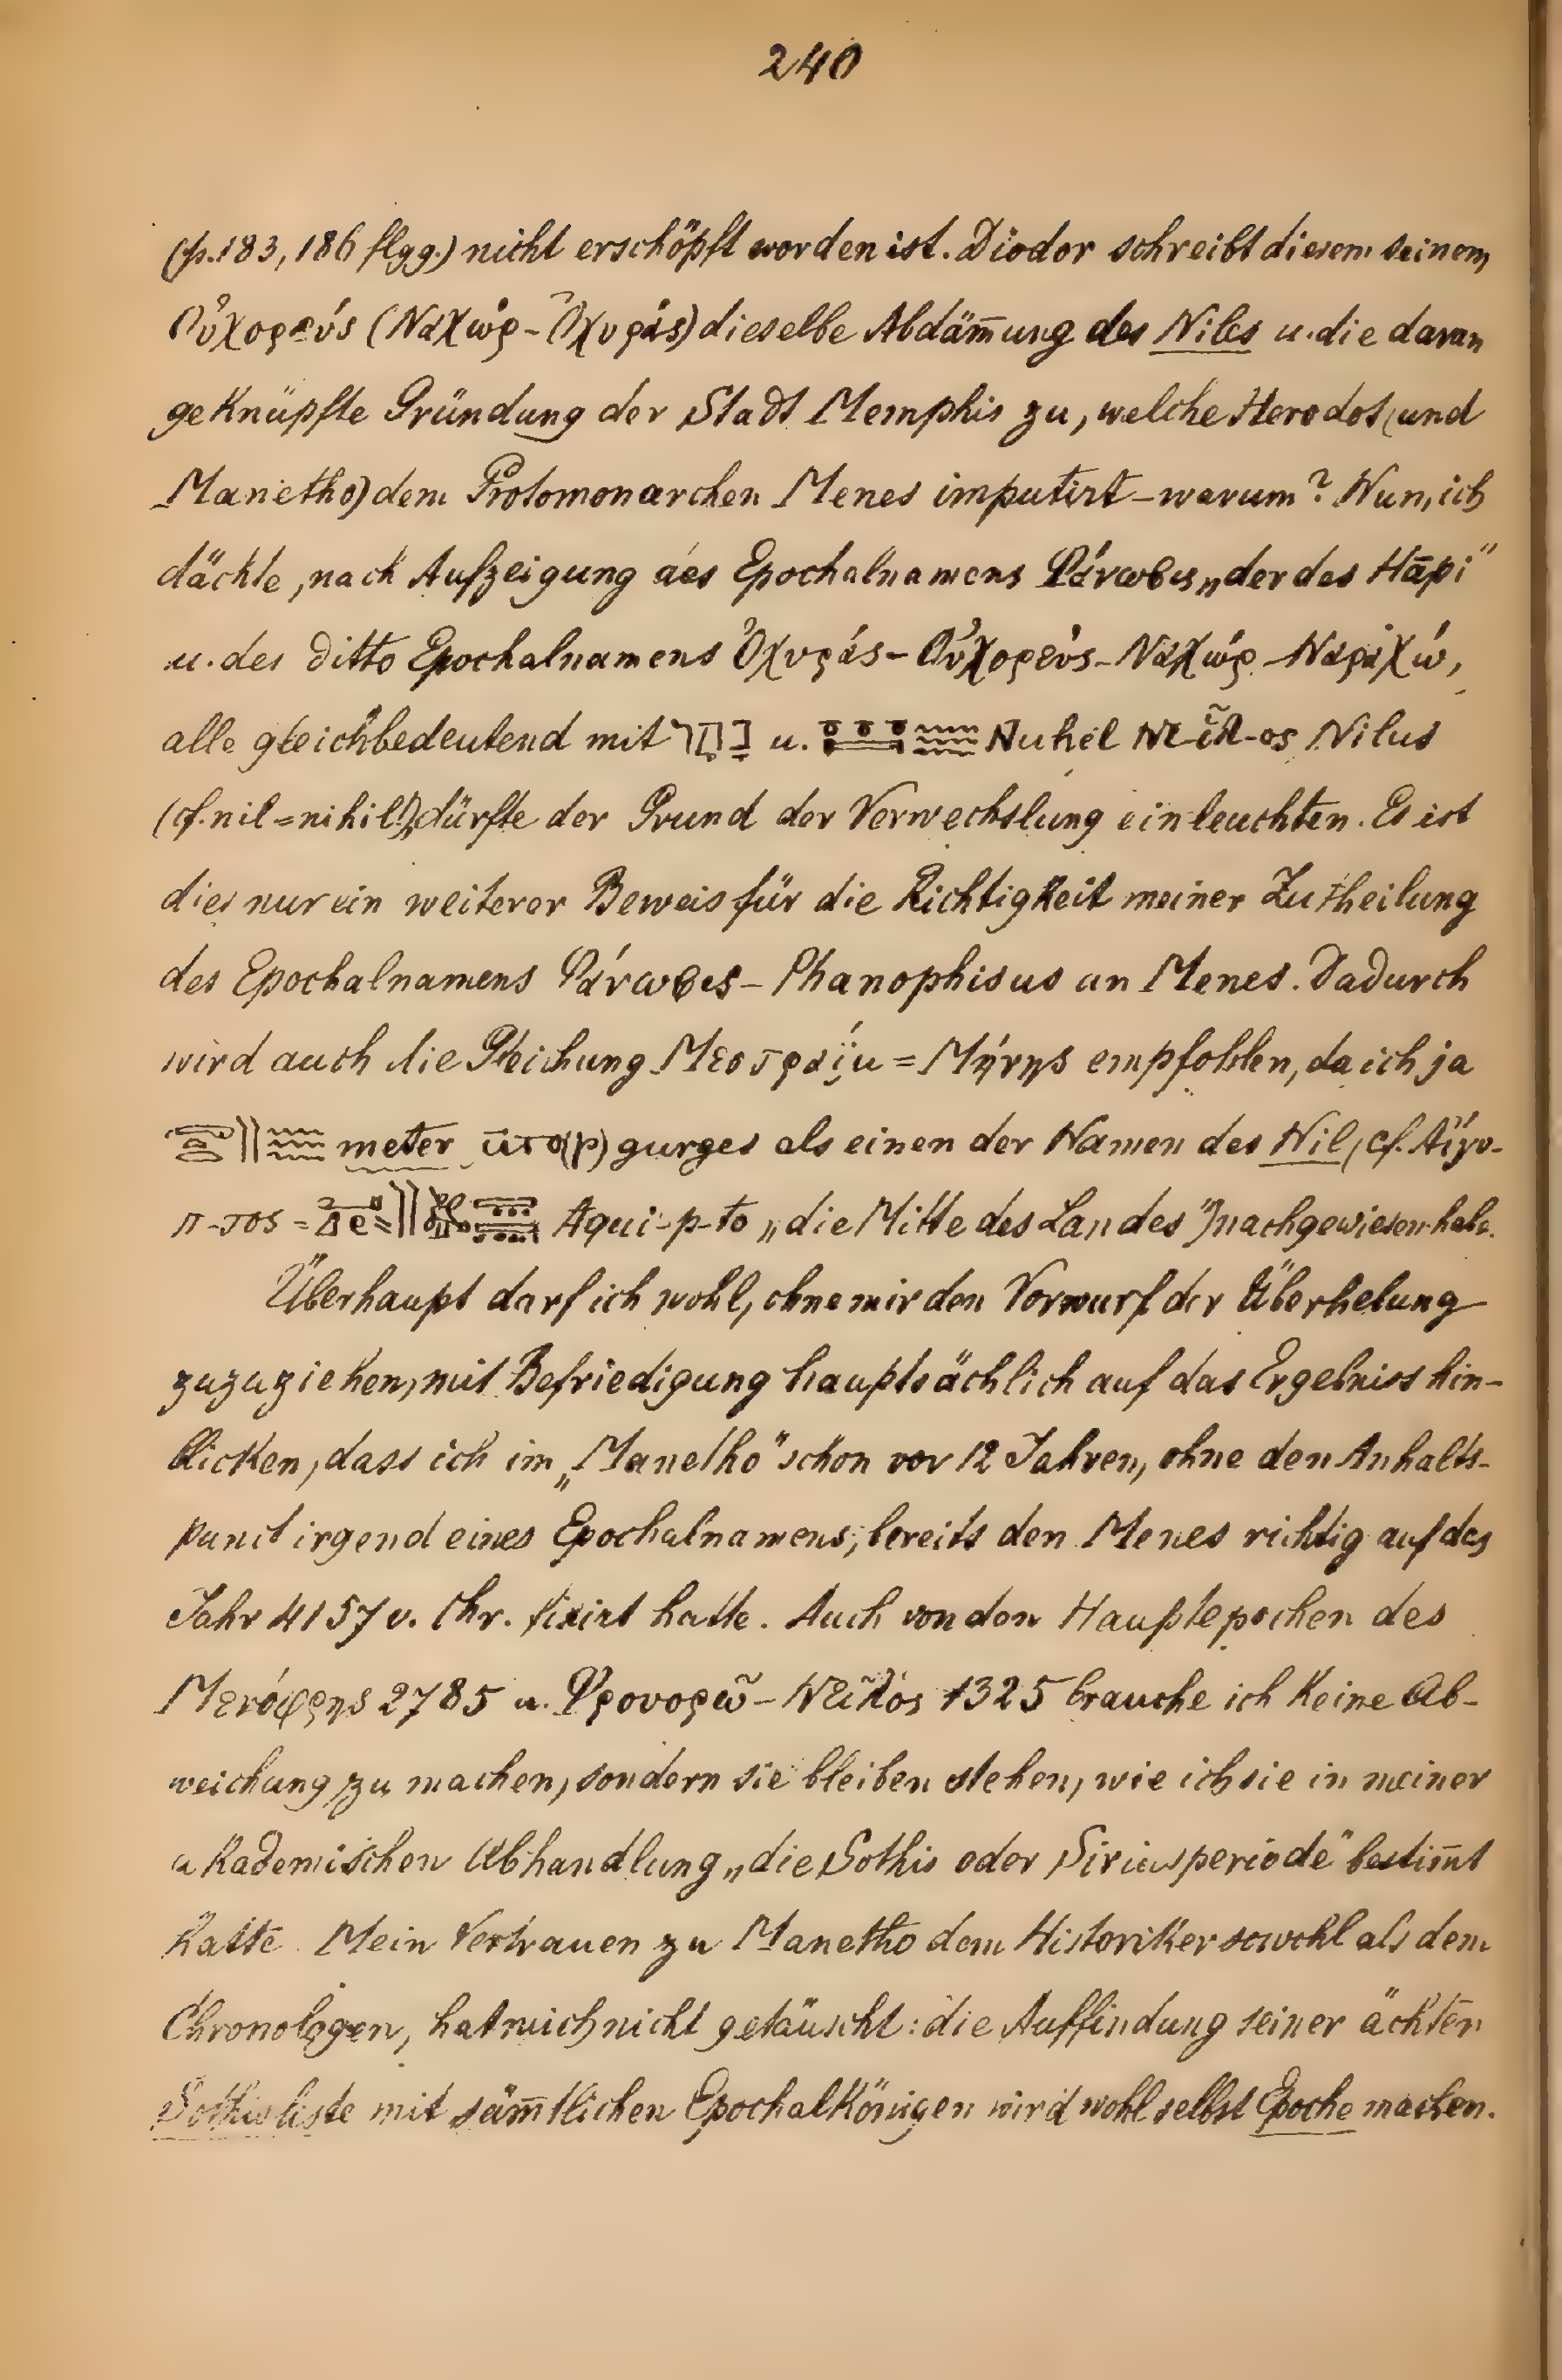 240
(p. 183, 186 flgg.) nicht erschöpft worden ist. Diodor schreibt diesem seinem
Οὐχορεύς (Ναχώρ-Ὀχυράς) dieselbe Abdäm̅ung des Niles u. die daran
geknüpfte Gründung der Stadt Memphis zu, welche Herodot (und
Manetho) dem Protomonarchen Menes imputirt – warum? Nun, ich
dächte, nach Aufzeigung des Epochalnamens Φάνωφις „der des Hāpi"
u. des ditto Epochalnamens Ὀχυράς – Οὐχορεύς – Ναχώρ – Ναραχώ,
alle gleichbedeutend mit u. Nuhel Νεῖλ-ος Nilus
(cf. nil = nihil!), dürfte der Grund der Verwechslung einleuchten. Es ist
dies nur ein weiterer Beweis für die Richtigkeit meiner Zutheilung
des Epochalnamens Φάνωφις – Phanophisus an Menes. Dadurch
wird auch die Gleichung Μεστραΐμ = Μήνης empfohlen, da ich ja
meter gurges als einen der Namen des Nil (cf. Αἴγυ-
π-τος = Aqui-p-to „die Mitte des Landes") nachgewiesen habe.
Überhaupt darf ich wohl, ohne mir den Vorwurf der Überhebung
zuzuziehen, mit Befriedigung hauptsächlich auf das Ergebniss hin-
blicken, dass ich im „Manetho" schon vor 12 Jahren, ohne den Anhalts-
punct irgend eines Epochalnamens, bereits den Menes richtig auf das
Jahr 4157 v. Chr. fixirt hatte. Auch von den Hauptepochen des
Μενόφρης 2785 u. Φρουορῶ – Νεῖλος 1325 brauche ich keine Ab-
weichung zu machen, sondern sie bleiben stehen, wie ich sie in meiner
akademischen Abhandlung „die Sothis oder Siriusperiode" bestim̅t
hatte. Mein Vertrauen zu Manetho dem Historiker sowohl als dem
Chronologen, hat mich nicht getäuscht: die Auffindung seiner ächten
Sothisliste mit säm̅tlichen Epochalkönigen wird wohl selbst Epoche machen.